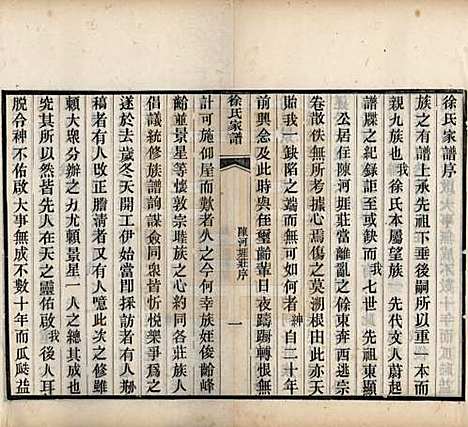 徐氏家譜序
族之有譜上承先祖下垂嗣續所以重一本而
親九族也 我徐氏本屬望族 先代文人蔚起
譜牒之紀錄詎至或缺而 我七世 先祖東顯
公居住陳河堐莊當離亂之餘東奔西逃宗
卷散佚無所考據心焉傷之莫溯根由此于今
貽我一缺陷之端也 紳自二十年
前興念及此時與侄璽齡輩日夜躊躇轉恨無
徐氏家譜
陳河堐莊序
一
計可施仰屋而歎者久之今何幸族姪俊齡峰
齡並景星等懷敦宗睦族之心約同各莊族人
倡議統修族譜詢謀僉同衆皆忻悅樂爭為之
遂於去歲冬天開工伊始當即採訪者有人謄
稿者有人閱文對字者又有人噫此次修雖
賴大衆分辦之力尤賴景星一人之總其成也
究其所以然皆先人在天之靈佑啟 我後人耳
脫合神不佑啟大事無成不數十年而瓜瓞益